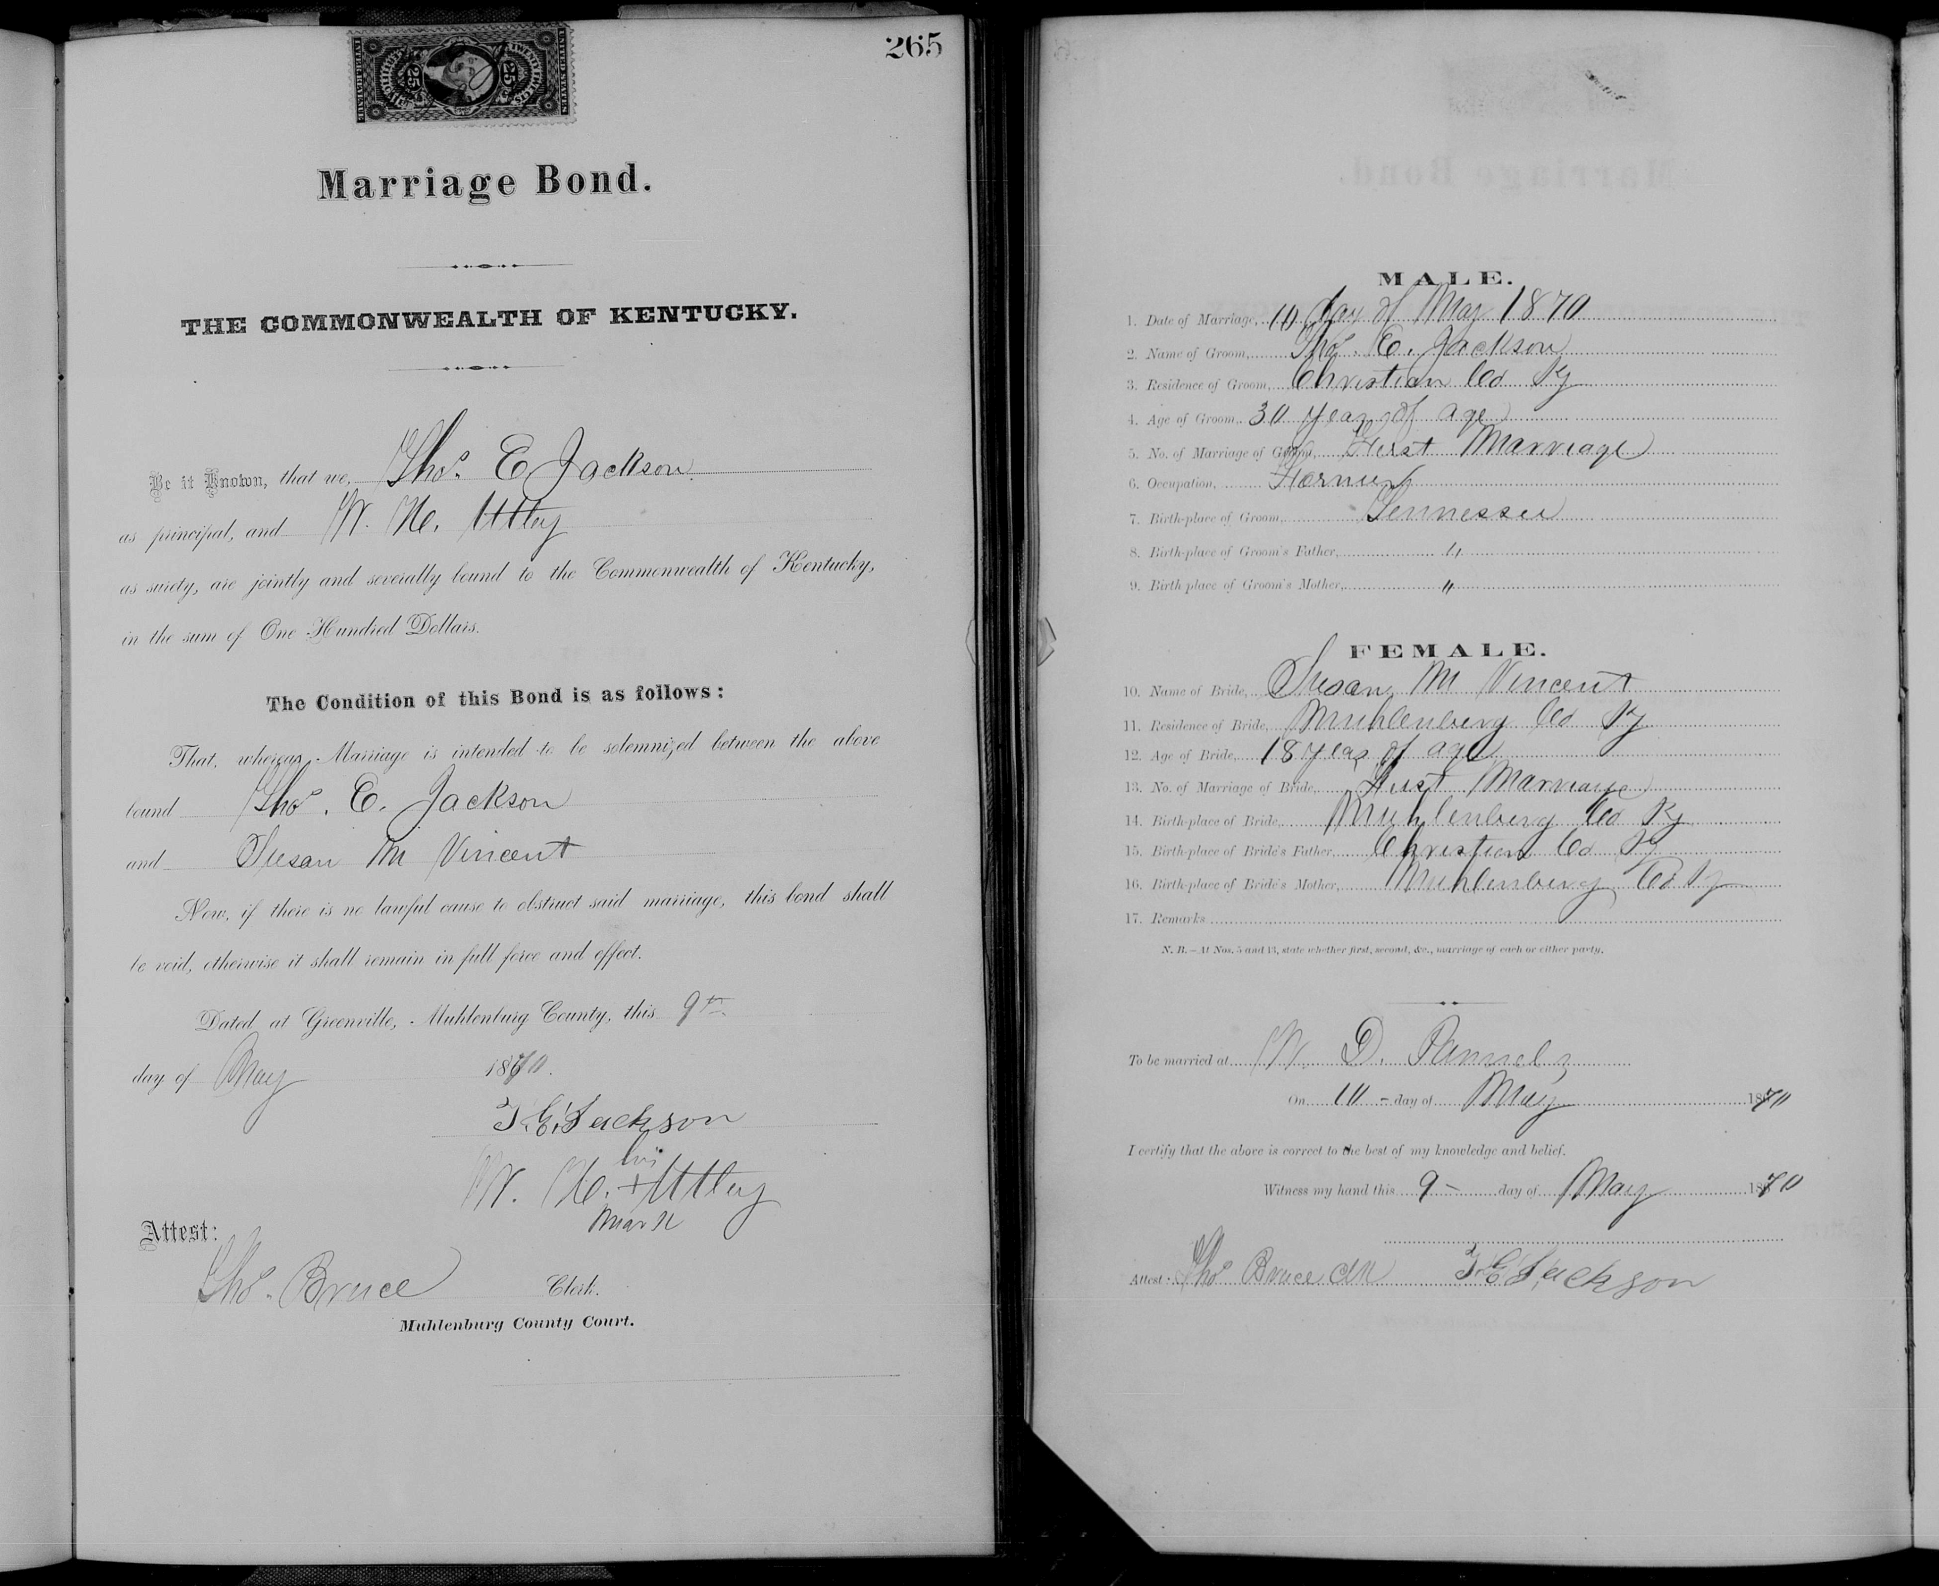 265
UNITED STATES
INTER. REVENUE
25 25
Marriage Bond.
THE COMMONWEALTH OF KENTUCKY.
Be it Known, that we, Thos. E Jackson
as principal, and W. H. Uttley
as surety, are jointly and severally bound to the Commonwealth of Kentucky,
in the sum of One Hundred Dollars.
The Condition of this Bond is as follows:
That, whereas Marriage is intended to be solemnized between the above
bound Thos. E. Jackson
and Susan M Vincent
Now, if there is no lawful cause to obstruct said marriage, this bond shall
be void, otherwise it shall remain in full force and effect.
Dated at Greenville, Muhlenburg County, this 9th
day of May 1870.
T. E. Jackson
his
W. H. + Uttley
mark
Attest:
Thos. Bruce Clerk.
Muhlenburg County Court.
MALE.
1. Date of Marriage, 10 day of May 1870
2. Name of Groom, Thos. E. Jackson
3. Residence of Groom, Christian Co Ky
4. Age of Groom, 30 years of age
5. No. of Marriage of Groom, First Marriage
6. Occupation, Farmer
7. Birth-place of Groom, Tennessee
8. Birth-place of Groom's Father, "
9. Birth place of Groom's Mother, "
FEMALE.
10. Name of Bride, Susan M Vincent
11. Residence of Bride, Muhlenberg Co Ky
12. Age of Bride, 18 years of age
13. No. of Marriage of Bride, First Marriage
14. Birth-place of Bride, Muhlenberg Co Ky
15. Birth-place of Bride's Father, Christian Co Ky
16. Birth-place of Bride's Mother, Muhlenberg Co Ky
17. Remarks
N. B.—At Nos. 5 and 13, state whether first, second, &c., marriage of each or either party.
To be married at W. D.
On 10 - day of May 1870
I certify that the above is correct to the best of my knowledge and belief.
Witness my hand this 9 - day of May 1870
Attest: Thos Bruce Clk T. E. Jackson